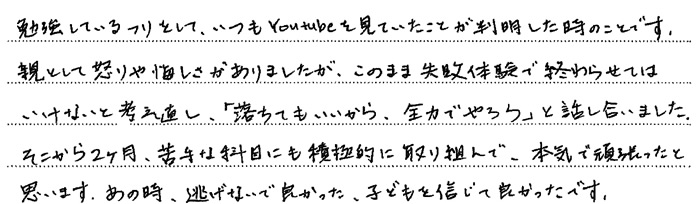 勉強しているフリをして、いつもYoutubeを見ていたことが判明した時のことです。
親として怒りや悔しさがありましたが、このまま失敗体験で終わらせては
いけないと考え直し、「落ちてもいいから、全力でやろう」と話し合いました。
そこから2ヶ月、苦手な科目にも積極的に取り組んで、本気で頑張ったと
思います。あの時、逃げないで良かった、子どもを信じて良かったです。